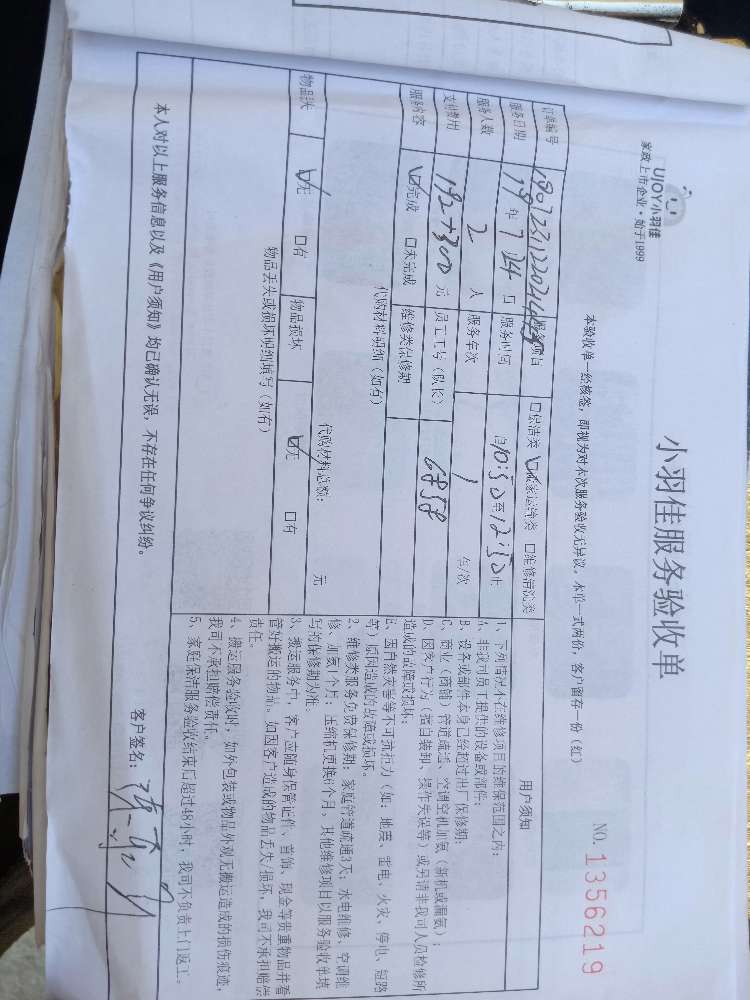 UJOY小羽佳
家政上市企业·始于1999
小羽佳服务验收单
NO. 1356219
本验收单一经核签，即视为对本次服务验收无异议，本单一式两份，客户留存一份（红）
订单编号
服务项目 口保洁类 口搬家运输类 口维修清洗类
服务日期 19年7 24日 服务时间 自10:50至12:50止
服务人数 2人 服务车次 1 车/次
支付费用 192+300元 员工工号（队长） 6858
服务内容 口完成 口未完成 维修类保修期
代购材料明细（如有）
代购材料总额： 元
物品丢失 口无 口有 物品损坏 口无 口有
物品丢失或损坏明细填写（如有）
用户须知
1、下列情况不在维修项目的维保范围之内：
A、非我司员工提供的设备或部件；
B、设备或部件本身已经超过出厂保修期；
C、商业（商铺）管道疏通、空调装机加氨（新机或漏氨）；
D、因客户行为（擅自装卸、操作失误等）或另请非我司人员检修所
造成的故障或损坏。
E、因自然灾害等不可抗拒力（如：地震、雷电、火灾、停电、短路
等）原因造成的故障或损坏。
2、维修类服务免费保修期：家庭管道疏通3天；水电维修、空调维
修、加氨1个月；压缩机更换6个月，其他维修项目以服务验收单填
写的保修期为准。
3、搬运服务中，客户应随身保管证件、首饰、现金等贵重物品并看
管好搬运的物品。如因客户造成的物品丢失/损坏，我司不承担赔偿
责任。
4、搬运服务验收时，如外包装或物品外观无搬运造成的损伤痕迹，
我司不承担赔偿责任。
5、家庭保洁服务验收结束后超过48小时，我司不负责上门返工。
本人对以上服务信息以及《用户须知》均已确认无误，不存在任何争议纠纷。
客户签名：